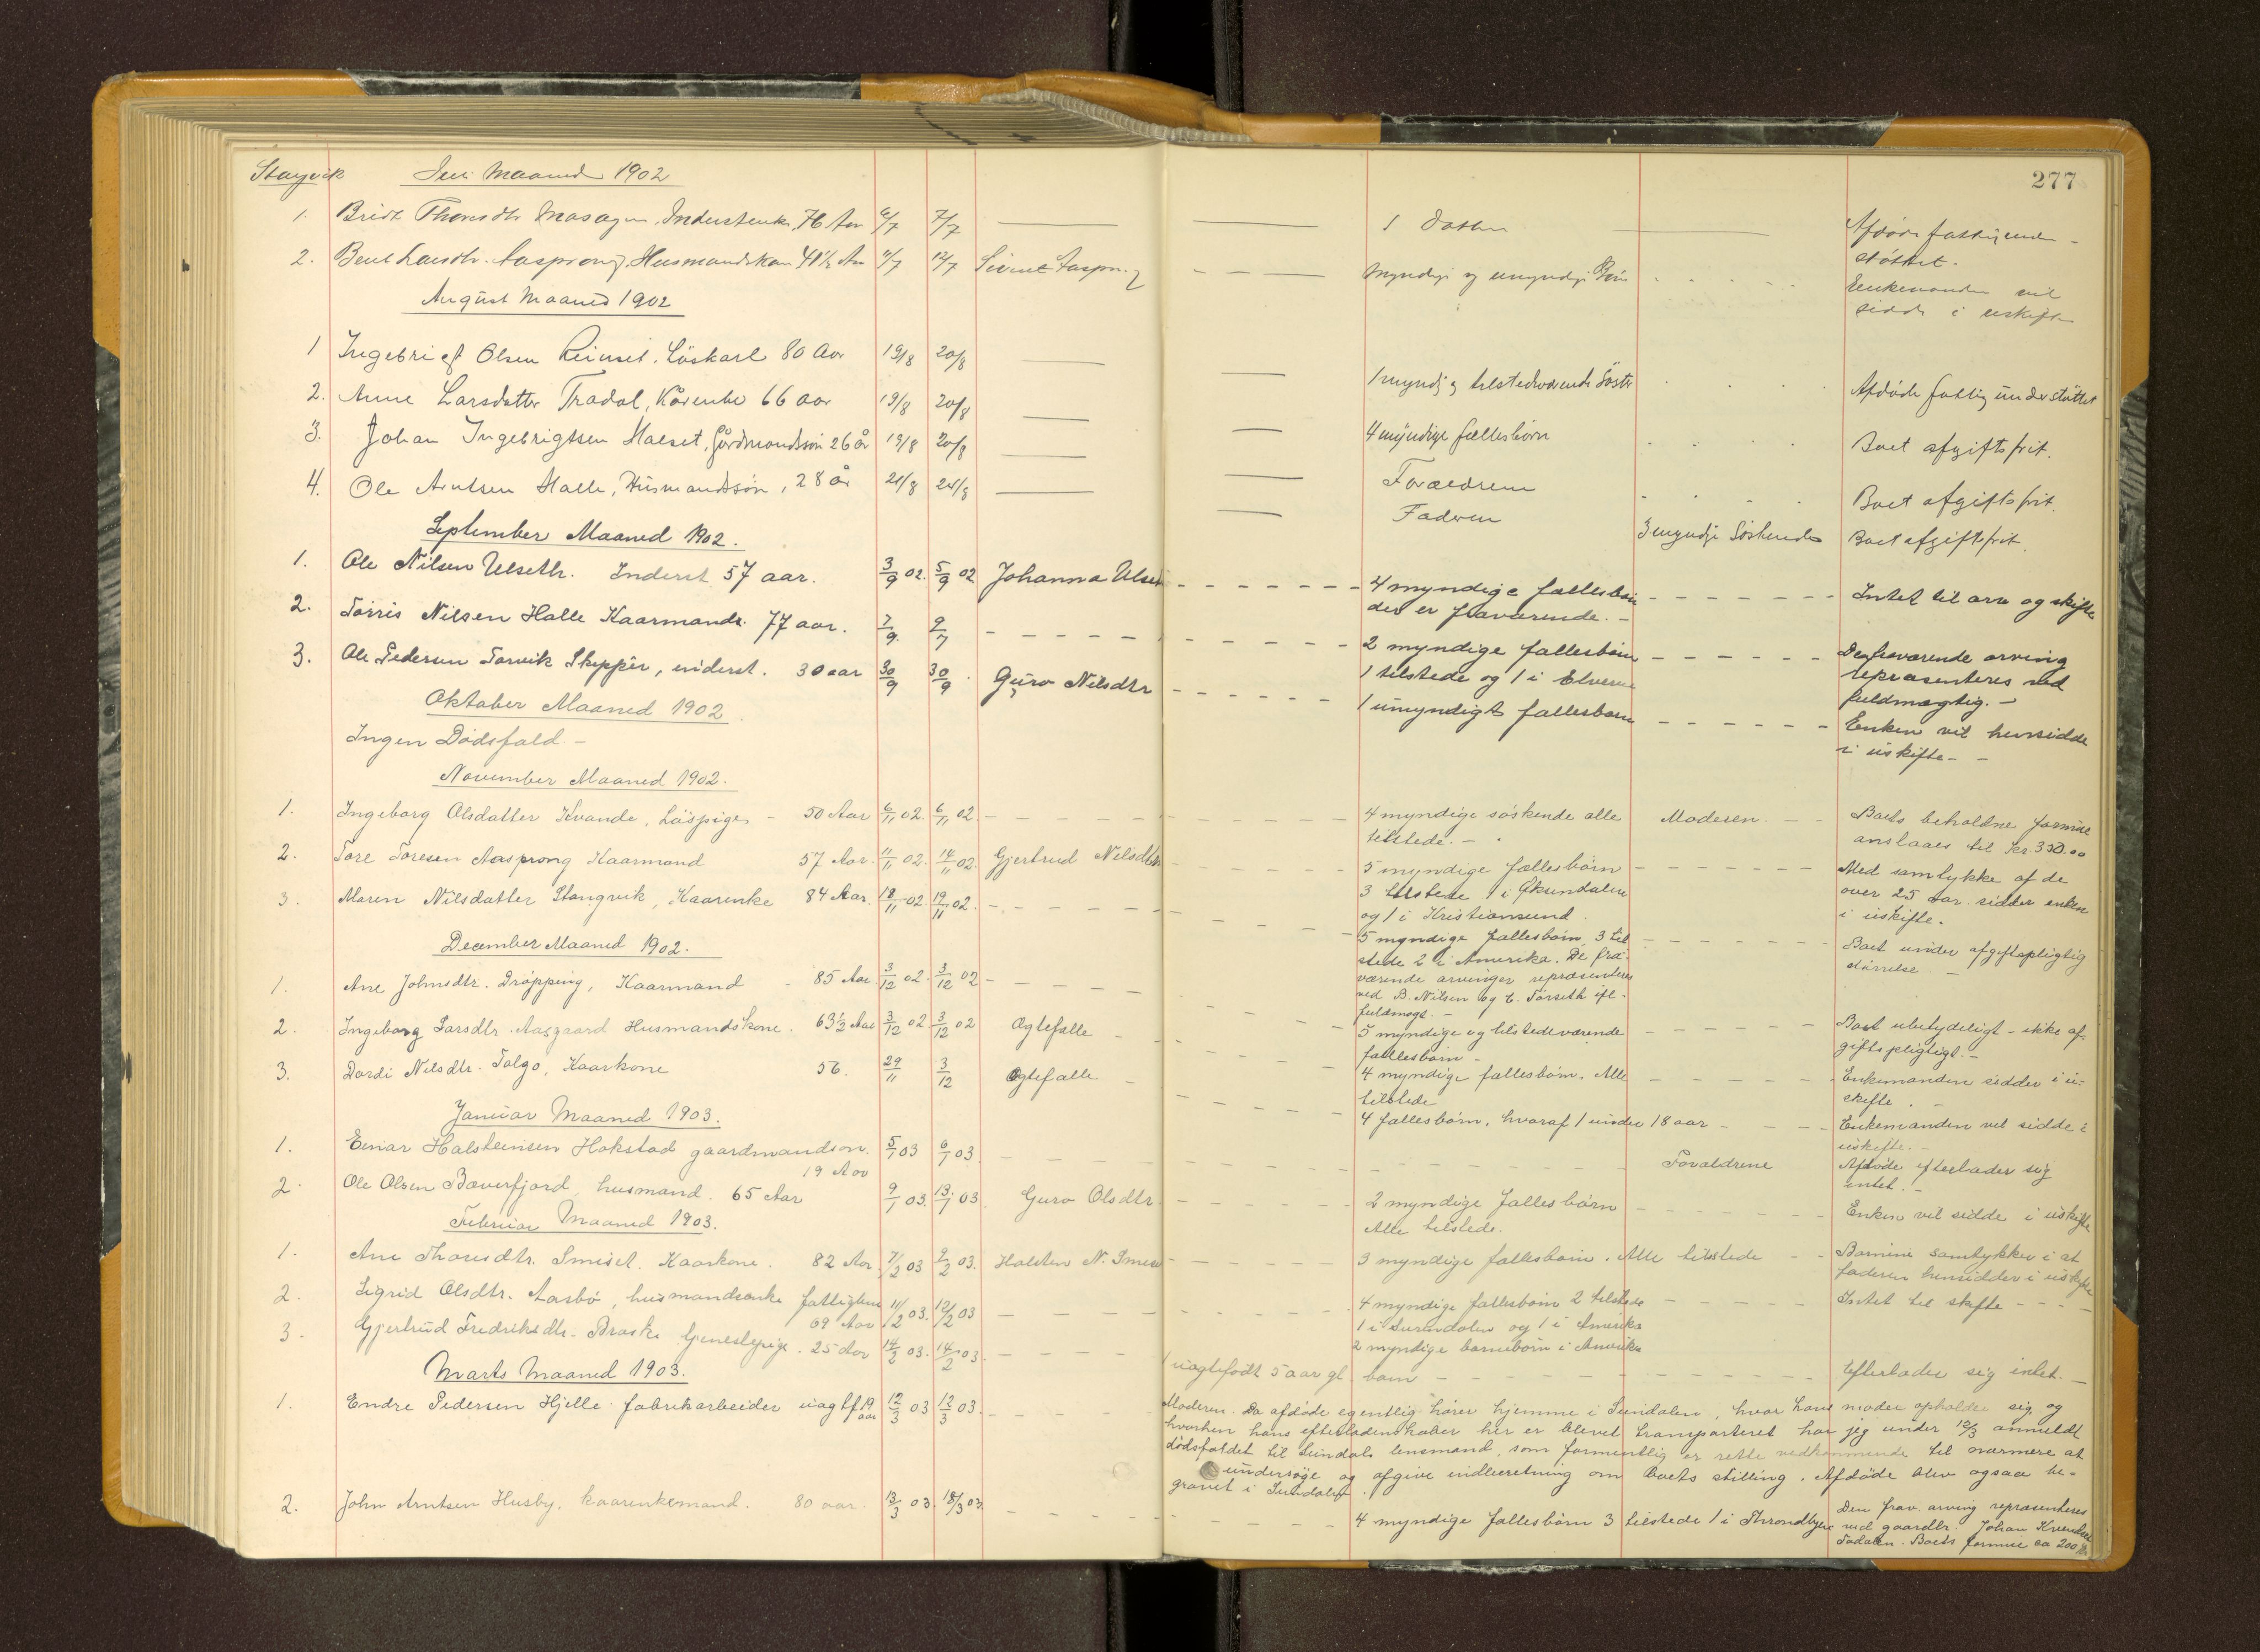 277
Stangvik Juli Maaned 1902
1. Bridt Thoresdtr Inderstenke, 76 Aar 6/7 7/7 1 Datter Afdøde fattigunder-
støttet.
2. Larsdtr. Aasprong, Husmandskone 41½ Aar 11/7 12/7 Sivert Aasprong Myndige og umyndige Børn Enkemanden vil
sidde i uskifte
August Maaned 1902
1 Ingebrigt Olsen Löskarl 80 Aar 19/8 20/8 1 myndig tilstedeværende Söster Afdøde fattigunderstöttet
2. Anne Larsdatter Tradal, Kårenke 66 aar 19/8 20/8 4 myndige fællesbörn Boet afgiftsfrit.
3. Johan Ingebrigtsen Halset, Gårdmandssön 26 år 19/8 20/8 Forældrene Boet afgiftsfrit.
4. Ole Arntsen Halle, Husmandssön, 28 år 21/8 24/8 Faderen 3 myndige Söskende Boet afgiftsfrit.
September Maaned 1902.
1. Ole Nilsen Ulseth. Inderst 57 aar. 3/9 02. 5/9 02 Johanna Ulset 4 myndige fællesbörn Intet til arv og skifte
der er fraværende. -
2. Torris Nilsen Halle Kaarmand. 77 aar. 7/9. 9/7 2 myndige fællesbörn Den fraværende arving
1 tilstede og 1 i Elverum repræsenteres ved
fuldmægtig. -
3. Ole Pedersen Torvik Skipper, inderst. 30 aar 30/9 30/9. Guro Nilsdtr 1 umyndigt fællesbarn Enken vil hensidde
i uskifte - -
Oktober Maaned 1902.
Ingen Dödsfald. -
November Maaned 1902.
1. Ingeborg Olsdatter Kvande, Löspige - 50 Aar 6/11 02. 6/11 02. 4 myndige söskende alle Moderen. - - Boets beholdne formue
tilstede. - anslaaes til kr. 330.00
2. Tore Toresen Aasprong Kaarmand 57 Aar. 11/11 02. 14/11 02. Gjertrud Nilsdtr 5 myndige fællesbörn Med samtykke af de
3 tilstede 1 i Øksendalen over 25 aar sidder enken
og 1 i Kristiansund. i uskifte.
3. Maren Nilsdatter Stangvik, Kaarenke 84 Aar. 18/11 02. 19/11 02. 5 myndige fællesbörn, 3 til Boet under afgiftspligtig
stede 2 i Amerika. De fra- störrelse -
værende arvinger repræsenteres
ved B. Nilsen og E. Torseth ifl.
fuldmagt. -
December Maaned 1902.
1. Ane Johnsdtr. Dröpping, Kaarmand - 85 Aar. 3/12 02. 3/12 02 - 5 myndige og tilstedeværende Boet ubetydeligt - ikke af-
fællesbörn - giftspligtigt. -
2. Ingeborg Larsdtr. Aasgaard Husmandskone. 63½ Aar 3/12 02. 3/12 02 Ægtefælle 4 myndige fællesbörn. Alle Enkemanden sidder i u-
tilstede skifte. -
3. Dordi Nilsdtr. Talgö, Kaarkone 56. 29/11 3/12 Ægtefælle - 4 fællesbörn, hvoraf 1 under 18 aar - Enkemanden vil sidde i
uskifte. -
Januar Maaned 1903.
1. Einar Halsteinsen Hakstad gaardmandsön. 5/1 03 6/1 03. Forældrene Afdöde efterlader sig
19 Aar intet. -
2. Ole Olsen Bæverfjord, husmand. 65 Aar 9/1 03. 13/1 03 Guro Olsdtr. 2 myndige fællesbörn Enken vil sidde i uskifte
Alle tilstede.
Februar Maaned 1903.
1. Ane Thoresdtr. Smiset. Kaarkone. 82 Aar. 7/2 03 9/2 03. Halsten N. Smiset 3 myndige fællesbörn. Alle tilstede - - Börnene samtykker i at
faderen hensidder i uskifte
2. Sigrid Olsdtr. Aasbö, husmandsenke fattiglem 11/2 03. 12/2 03 4 myndige fællesbörn 2 tilstede Intet til skifte - - -
69 Aar 1 i Surendalen og 1 i Amerika
2 myndige barnebörn i Amerika
3. Gjertrud Fredriksdtr. Braske tjenestepige. 25 Aar 14/2 03. 14/2 03. 1 uægtefödt 5 aar gl. barn Efterlader sig intet. -
Marts Maaned 1903.
1. Endre Pedersen Hjelle. fabrikarbeider uægtf. 19 aar 12/3 03 12/3 03. Moderen. Da afdöde egentlig hörer hjemme i Sundalen, hvor hans moder opholder sig og
hvorhen hans efterladenskaber her er blevet transporteret har jeg under 12/3 anmeldt
dödsfaldet til Sundals lensmand, som formentlig er rette vedkommende til nærmere at
undersöge og afgive indberetning om boets stilling. Afdöde blev ogsaa be-
gravet i Sundalen.
2. John Arntsen Husby, kaarenkemand. 80 aar. 13/3 03. 18/3 03. 4 myndige fællesbörn 3 tilstede 1 i Throndhjem Den frav. arving repræsenteres
ved gaardbr. Johan Kvendset
Todalen. Boets formue ca 200 kr.